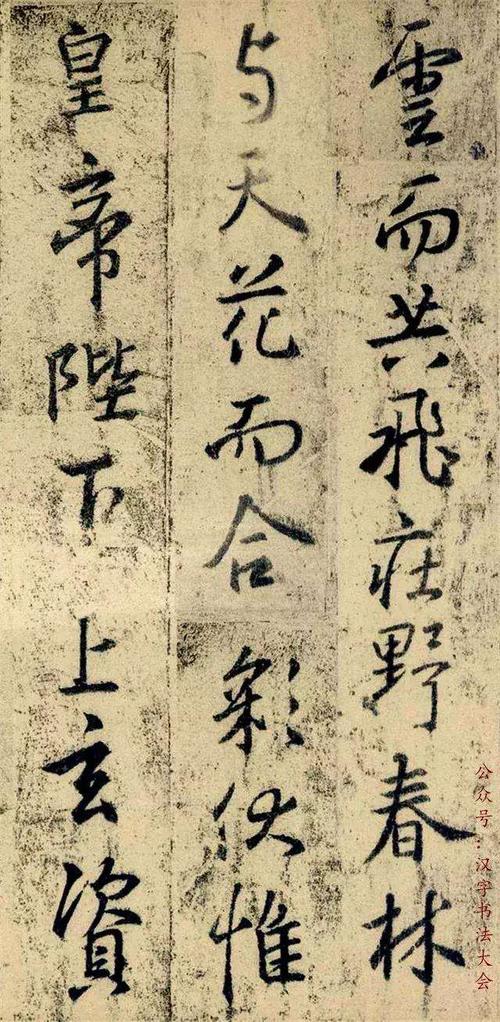 雲而共飛庄野春林
与天花而合彩伏惟
皇帝陛下上玄資
公众号:汉字书法大会